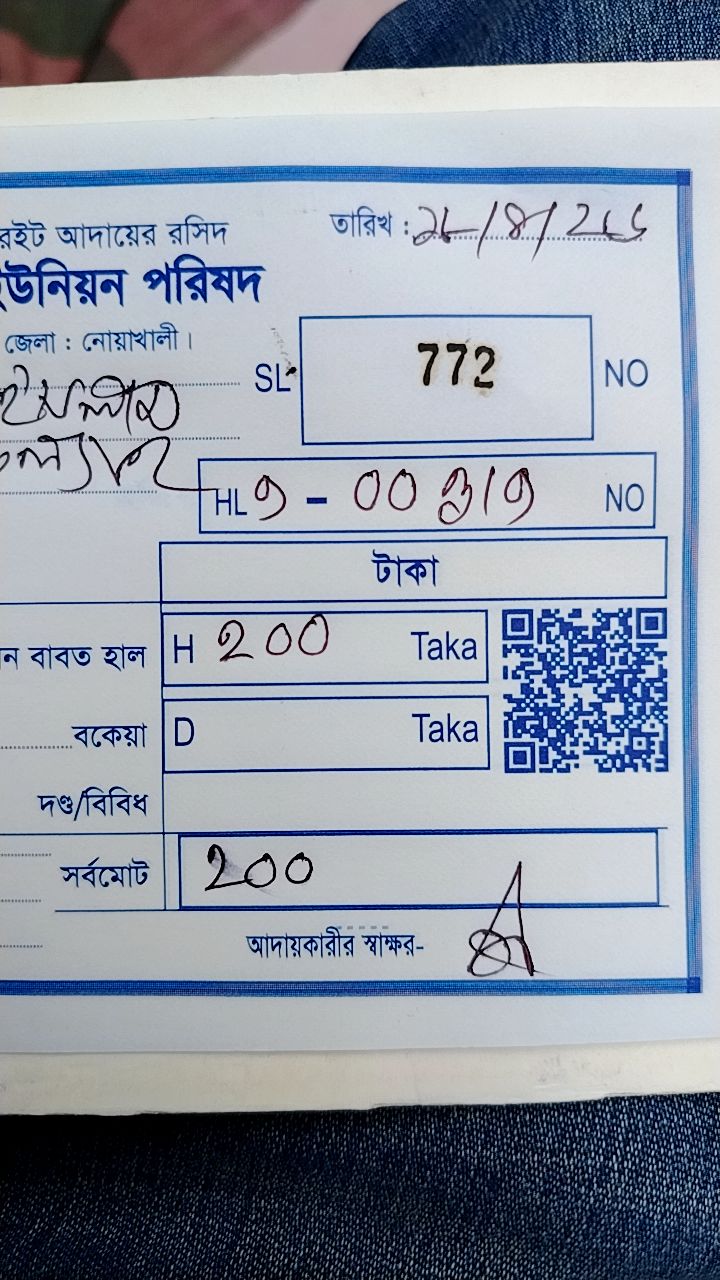 রেইট আদায়ের রসিদ
তারিখ :
ইউনিয়ন পরিষদ
জেলা : নোয়াখালী।
SL 772 NO
HL ৭ - ০০৩১৭ NO
টাকা
ন বাবত হাল H ২০০ Taka
বকেয়া D Taka
দণ্ড/বিবিধ
সর্বমোট ২০০
আদায়কারীর স্বাক্ষর-